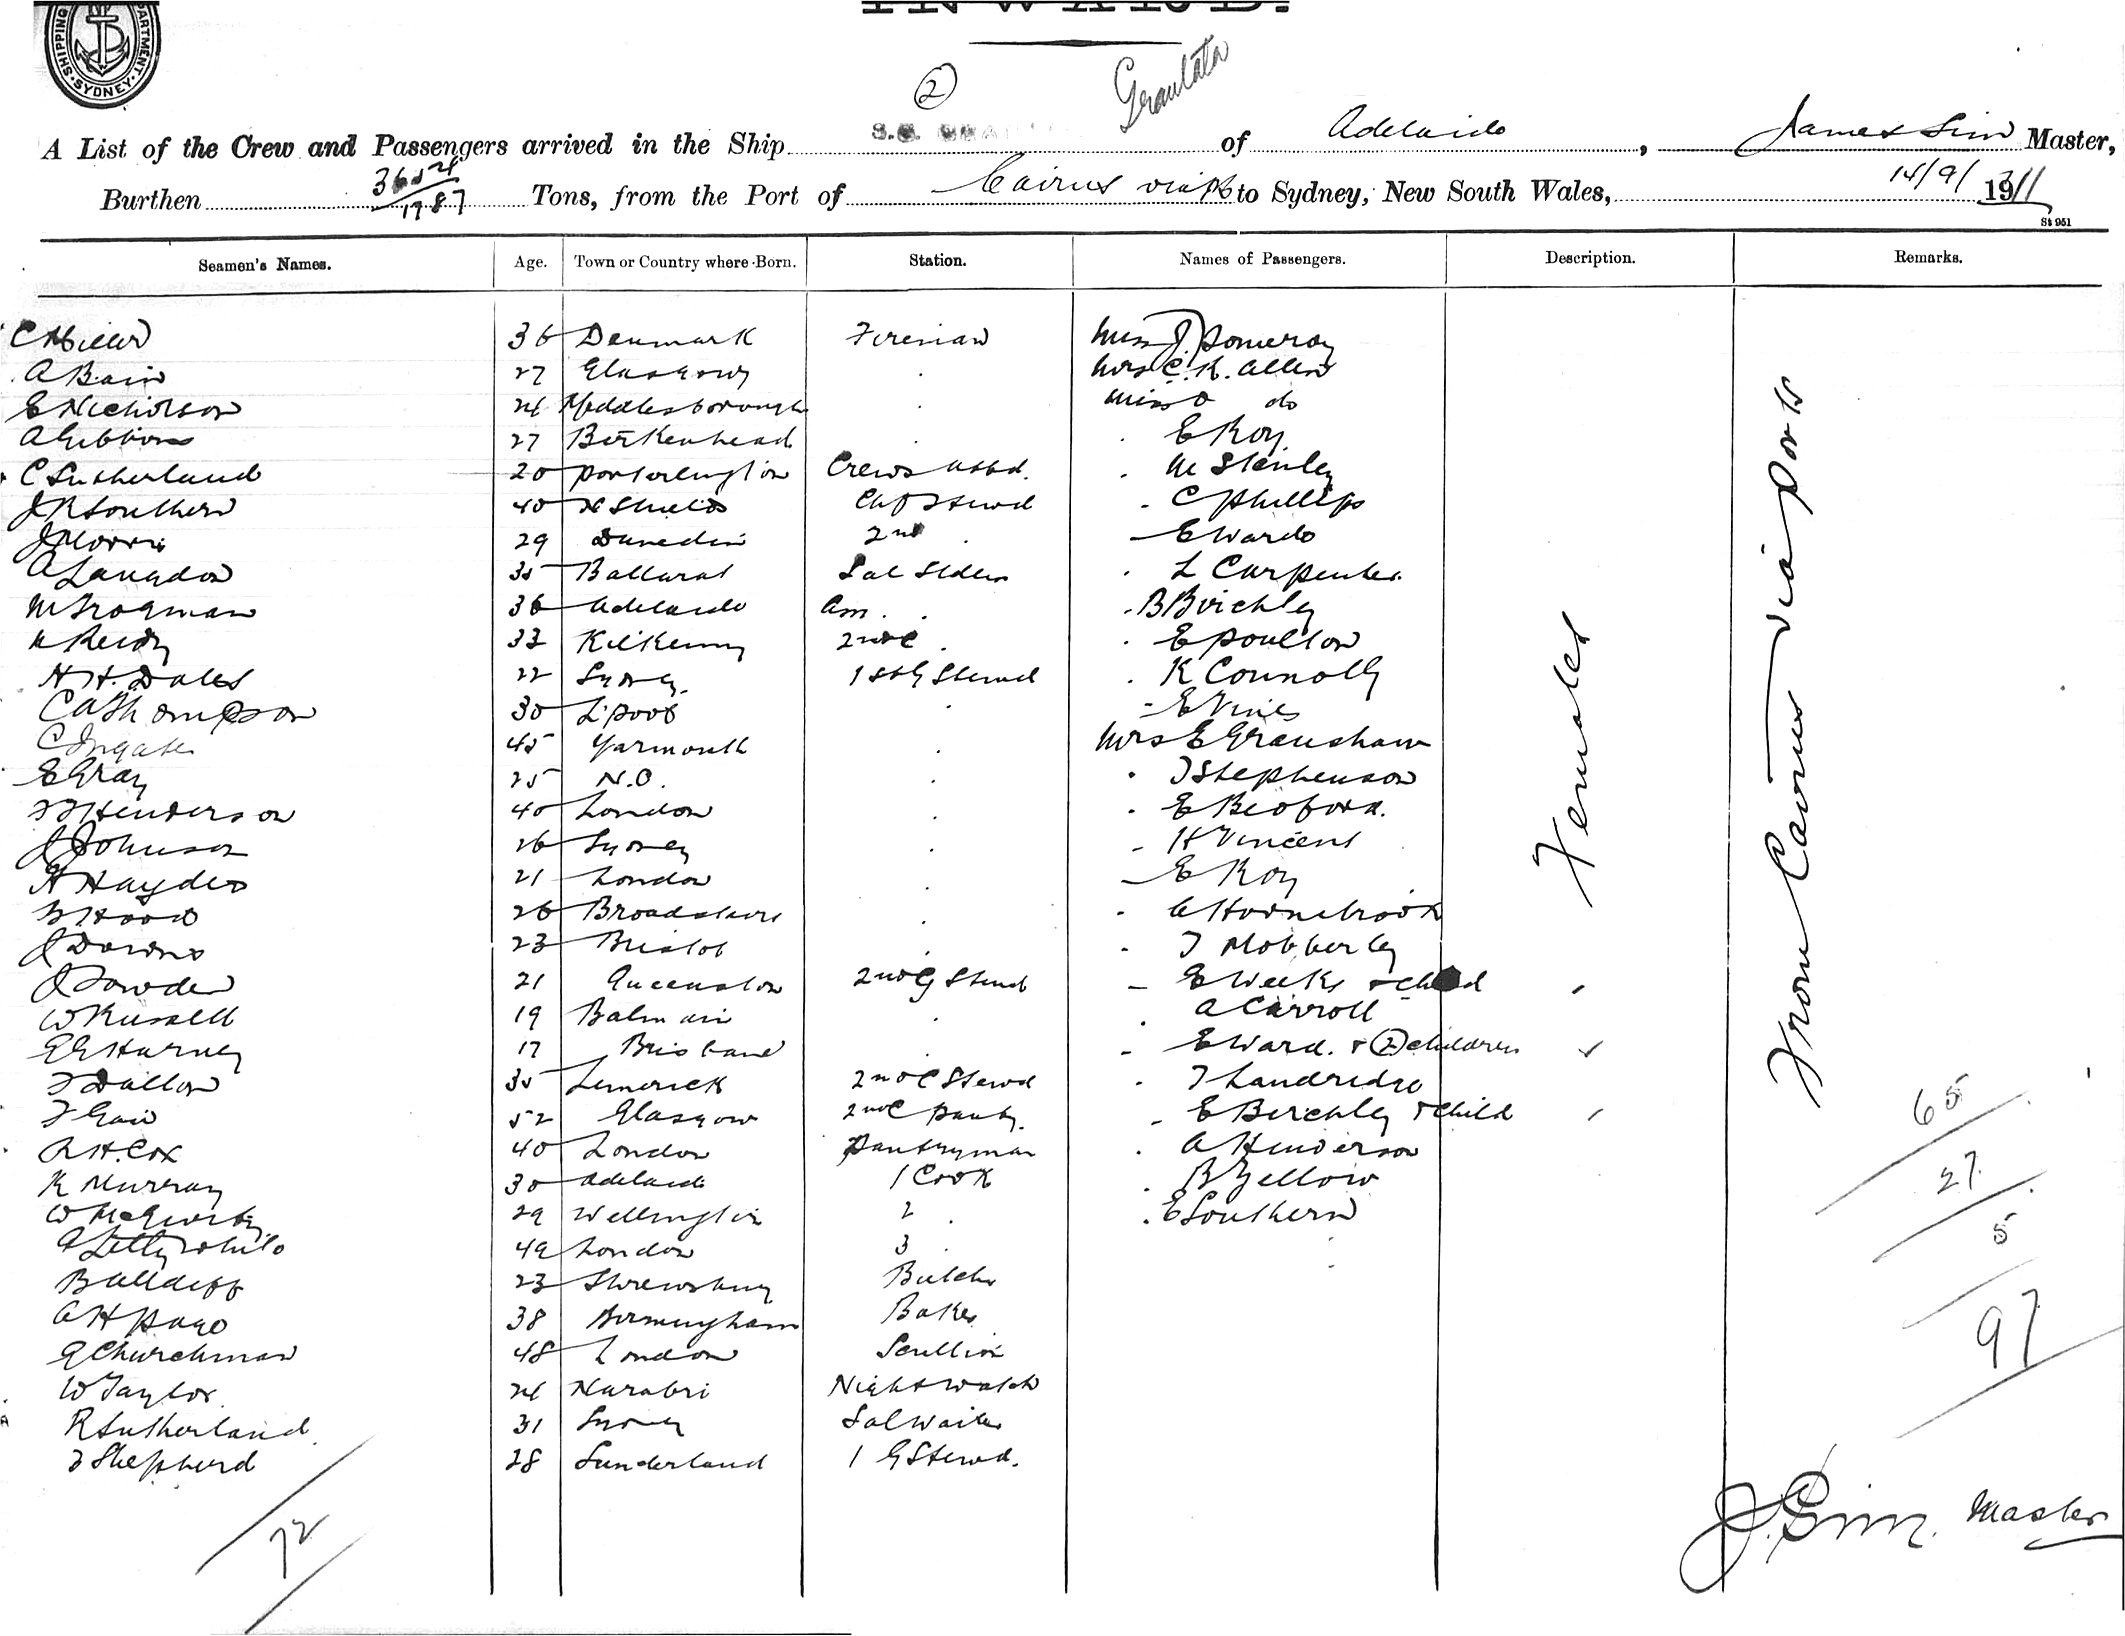 SHIPPING DEPARTMENT SYDNEY
INWARD.
2
Grantala
A List of the Crew and Passengers arrived in the Ship of Adelaide, James Sim Master,
Burthen 3654/1787 Tons, from the Port of Cairns via pts to Sydney, New South Wales, 14/9/1911
St 951
Seamen's Names. Age. Town or Country where Born. Station. Names of Passengers. Description. Remarks.
C Miller 36 Denmark Fireman Miss J Pomeroy
A Bain 27 Glasgow . Mrs C. R. Allen
E Nicholson 24 Middlesborough . Miss O do
A Gibbons 27 Birkenhead . . E Roy
C Sutherland 20 Portarlington Crews Attd. . M Stanley
J R Southern 40 N Shields Chf Stewd . C Phillips
J Morris 29 Dunedin 2nd . - E Wards
A Langdon 35 Ballarat Sal Stdess . L Carpenter
M Trogman 36 Adelaide Am . . . B Birchley
K Reidy 33 Kilkenny 2nd C . . E Poulton
H H. Dales 22 Sydney. 1st G Stewd . K Connolly
C A Thompson 30 L'pool . - E Vines
C Ingate 45 Yarmouth . Mrs E Granshaw
E Gray 25 N.O. . . J Stephenson
F F Henderson 40 London . . E Bedford.
J Johnson 26 Sydney . - H Vincent
H Haydes 21 London . - E Roy
B Hood 26 Broadstairs . . A Hornebrook
J Downs 23 Bristol . . J Mobberley
J Fowder 21 Queenston 2nd G Stewd - E Weeks + child
W Russell 19 Balmain . . A Carroll
E E Harney 17 Brisbane . - E Ward. + 2 children
F Dallow 35 Limerick 2nd C Stewd . J Landridge
F Gain 52 Glasgow 2nd C Pantry. - E Birchley + child
A H. Cox 40 London Pantryman . A Henderson
K Murray 30 Adelaide 1 Cook . B Yellow
W 29 Wellington 2 . . E Southern
A Lillywhite 49 London 3 .
B 23 Shrewsbury Butcher
A H Page 38 Birmingham Baker
G Churchman 48 London Scullion
W Taylor 24 Narabri Nightwatch
R Sutherland 31 Sydney Sal Waiter
F Shepherd 28 Sunderland 1 G Stewd.
72
Females
From Cairns via ports
65
27
5
97
J. Sim. Master